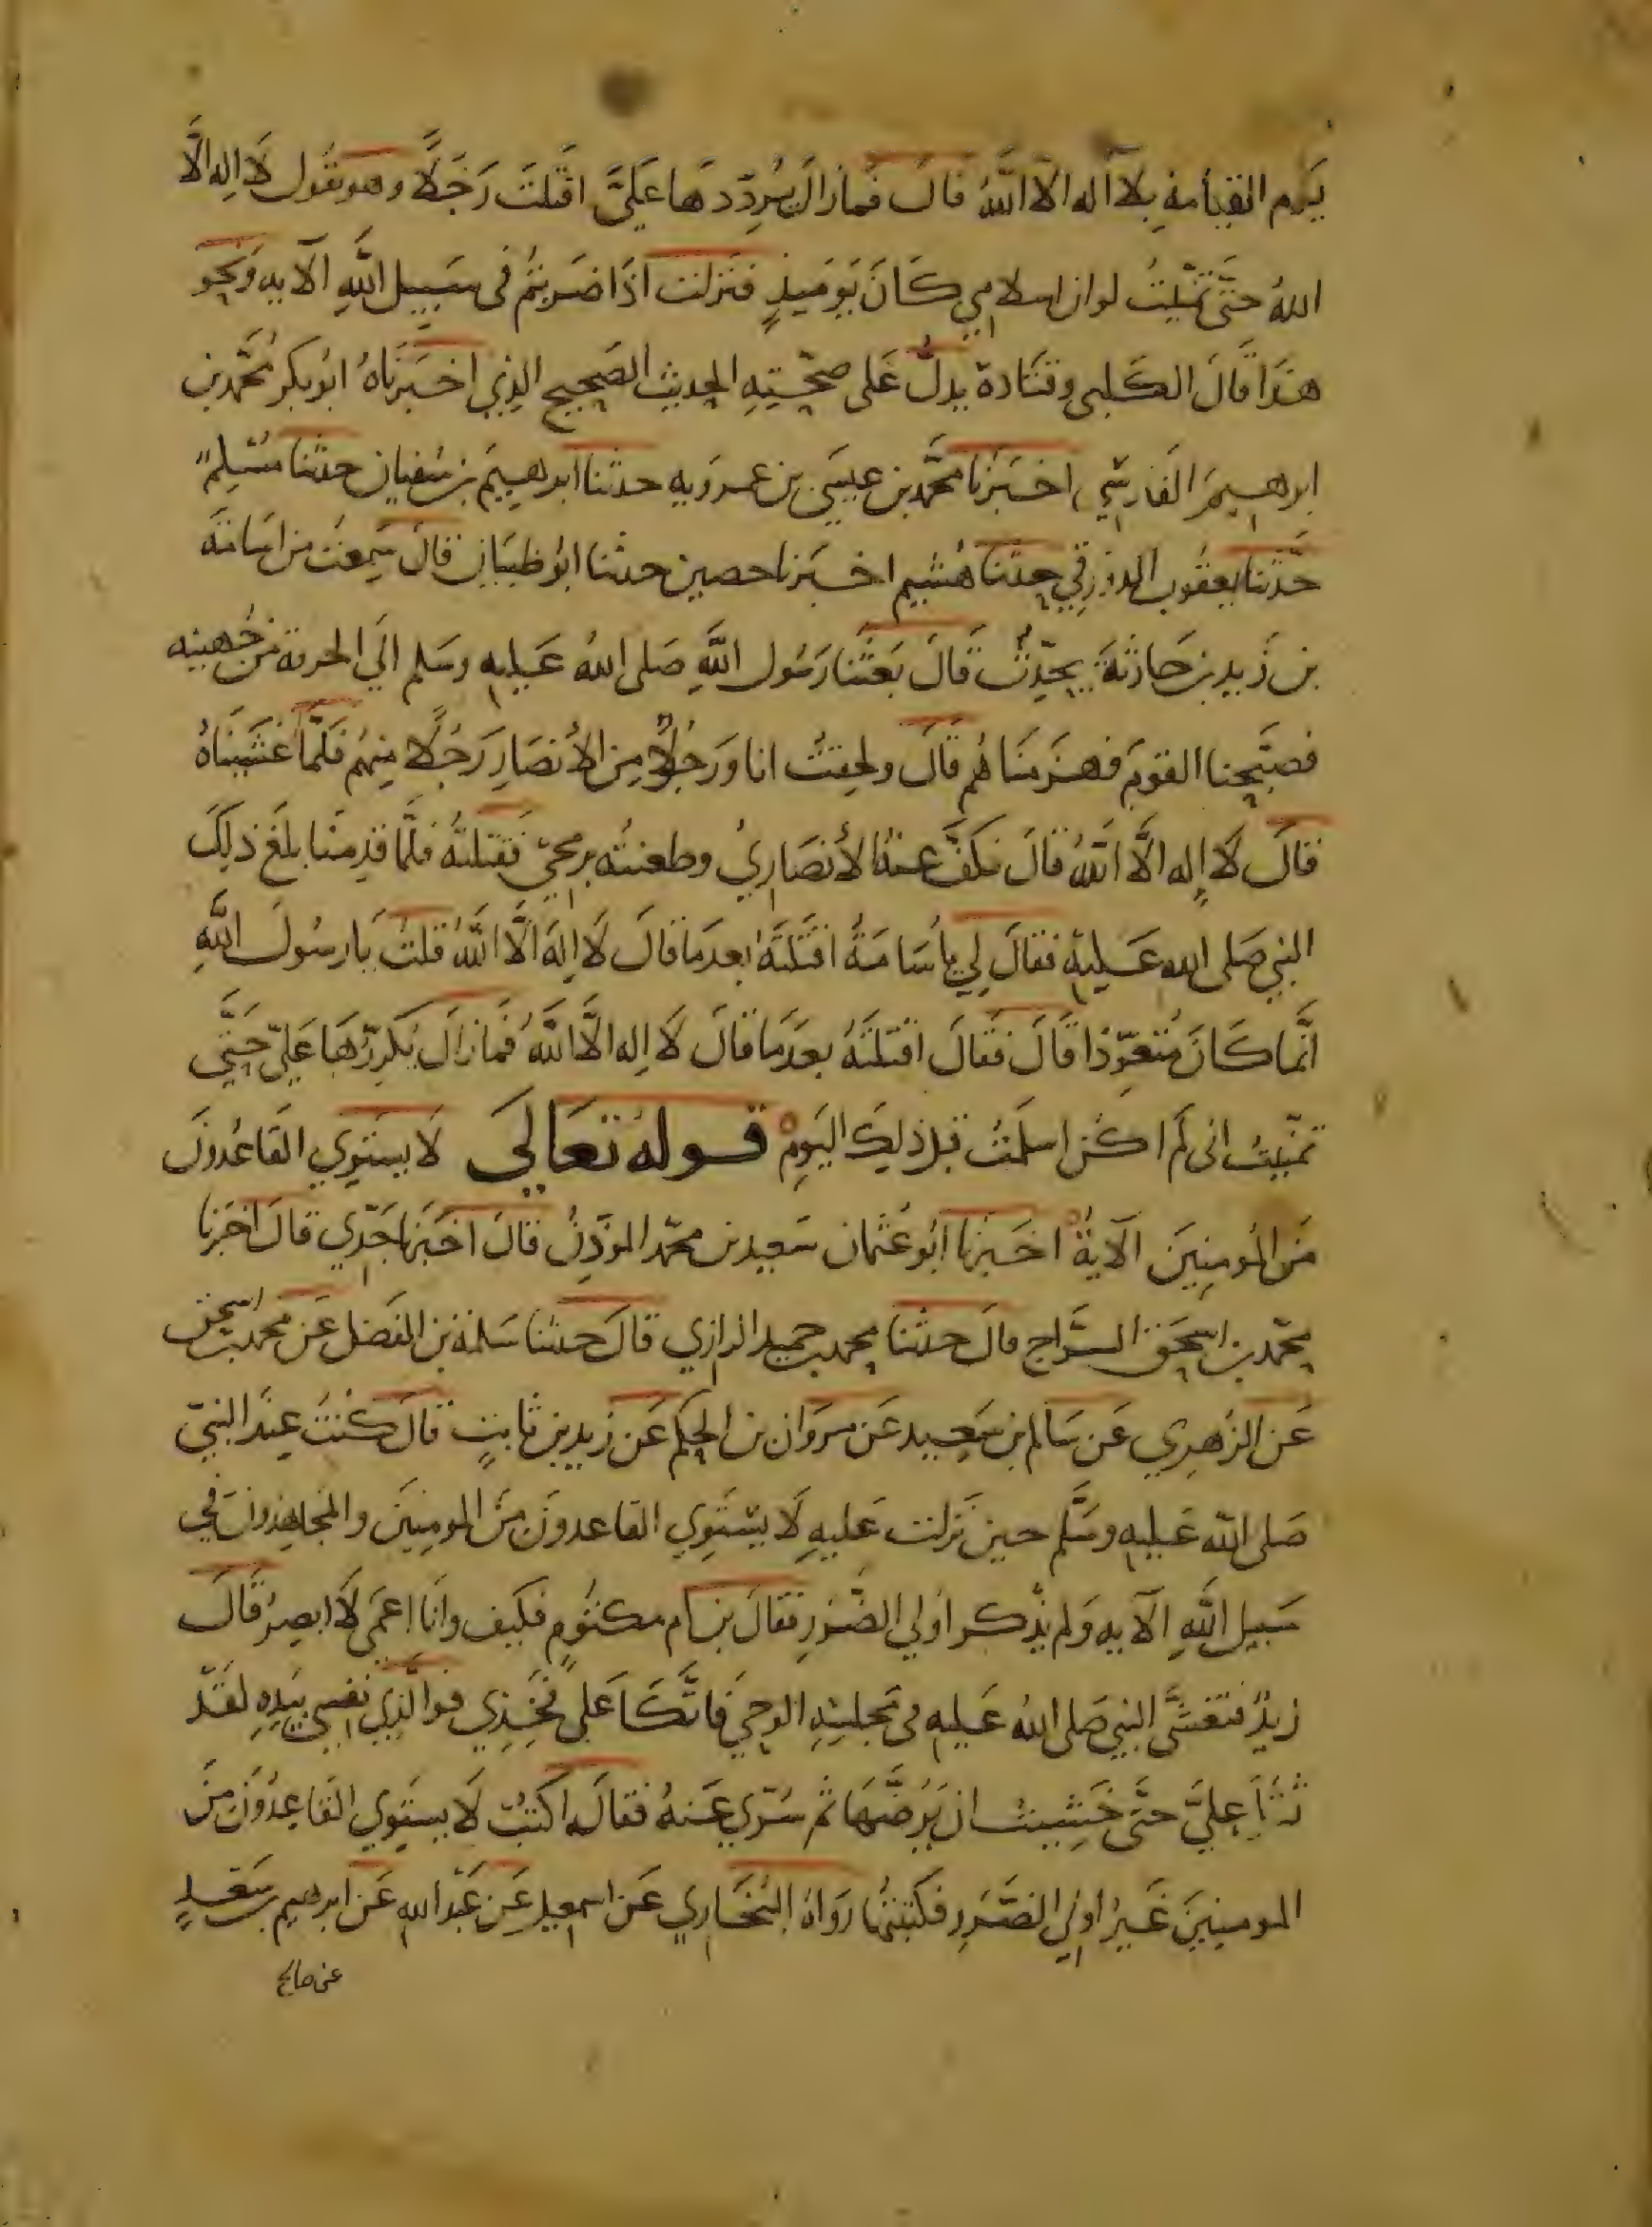 يَوم القيامةِ بلا اله الا اللهُ قالَ فمازالَ يُردّدهَا عَليَّ اقتلتَ رَجَلًا وهو يقُول لَا اِله الَّا
اللهُ حتّى تمنّيتُ لوان اسلامي كَانَ يَوميذٍ فنزلت اذَا ضَربتُم فى سَبِيل اللَّهِ الآيه وَنحو
هذَا قَالَ الكَلبى وقتَادة يدلُّ عَلى صحّتِهِ الحديث الصَحِيح الذِي اخبَرَناهُ ابُوبكر مُحَّمد بن
ابرهيمَ الفَارسِّي اخبَرنَا محَّمد بن عيسَى بن عمرَويه حدثنا ابرهيمَ بن سُفيان حدثنا مسْلِم
حدَّثنا يعقُوب الدَورَقي حدثنا هُشيم اخبَرنا حصين حدثنا ابُو ظبيَان قالَ سَمِعتُ من اسَامَة
بن زَيد بن حَارثةَ يحدِّثُ قَالَ بَعثَنا رَسُول اللَّهِ صَلى اللهُ عَليه وسَلم الَي الحرقة مَن جُهينه
فصَبّحنا القومَ فهزَمنَاهُم قَالَ ولحِقتُ انا ورَجُلٌ مِن الأنصَارِ رَجُلًا مِنهُم فَلَّما غشَينَاهُ
فقالَ لَا اِله الَّا اللهُ قالَ فكفَّ عنهُ الأنصَارِيُ وطعنتُه برمحِيّ فقتلتُهُ فلَّما قدِمنَا بلَغَ ذلِكَ
النبي صَلى الله عَليهِ فقالَ لِي يَأُسَامَةُ اقتَلتَهُ بعدمَا قالَ لَا اِلهَ الَّا اللَّهُ قلتُ يَا رسُولَ اللَّهِ
انَّما كَانَ مُتعوّذا قَالَ فقالَ اقتلتَهُ بعدَمَا قالَ لَا اِله الَّا اللَّهُ فمازالَ يُكرِّرُهَا عَليّ حَتَّى
تمنّيتُ انى لَم اكُن اسلمتُ قبل ذلِكَ اليَومِ قولهُ تَعَالَي لَا يستَوِي القَاعُدونَ
مَن المُومِنِينَ الآيةُ اخبَرنا ابُو عُثمان سَعيد بن محمّد الموذّنُ قالَ اخبَرنا جَدّي قالَ اخبَرنا
محّمد بن اسحَق السَّراج قالَ حدثنا محمد بن حميد الرازي قالَ حدثنا سَلمة بن الفَضل عَن محمد بن اسحق
عَن الزُهرِي عَن سَالم بن سَعِيد عَن مروَان بن الحكَم عَن زيد بن ثابتٍ قالَ كنتُ عِندَ النبيّ
صَلى الله عَليهِ وسَّلم حين نَزلت عَليهِ لَا يسَتوِي القاعدونَ مِنَ المومِنِينَ والمجاهِدُونَ فى
سَبيل اللَّهِ الآيه وَلم يذْكر اُولي الضّرَرِ فقالَ بن ام مكتُومٍ فكَيف وانَا اعمَى لَا ابصِرُ قَالَ
زيدٌ فتغشَّى النبي صَلى اللهُ عَليه فى مَجلسِهِ الوحيَ فاتّكَا عَلَى فَخِذِي فوالَّذِي نفسِي بيَدِهِ لقَد
ثَقُل عليَّ حتَّى خَشِيتُ ان يَرُضَّهَا ثُم سُرّي عَنهُ فقالَ اكتُب لَا يستَوِي القَاعِدُونَ مِنَ
المومنِينَ غَيرُ اولي الضَّررِ فكتبتُها رَوَاهُ البُخَارِي عَن اسمعِيل عَن عَبد الله عَن ابرهيم بن سَعدٍ
عن صالح